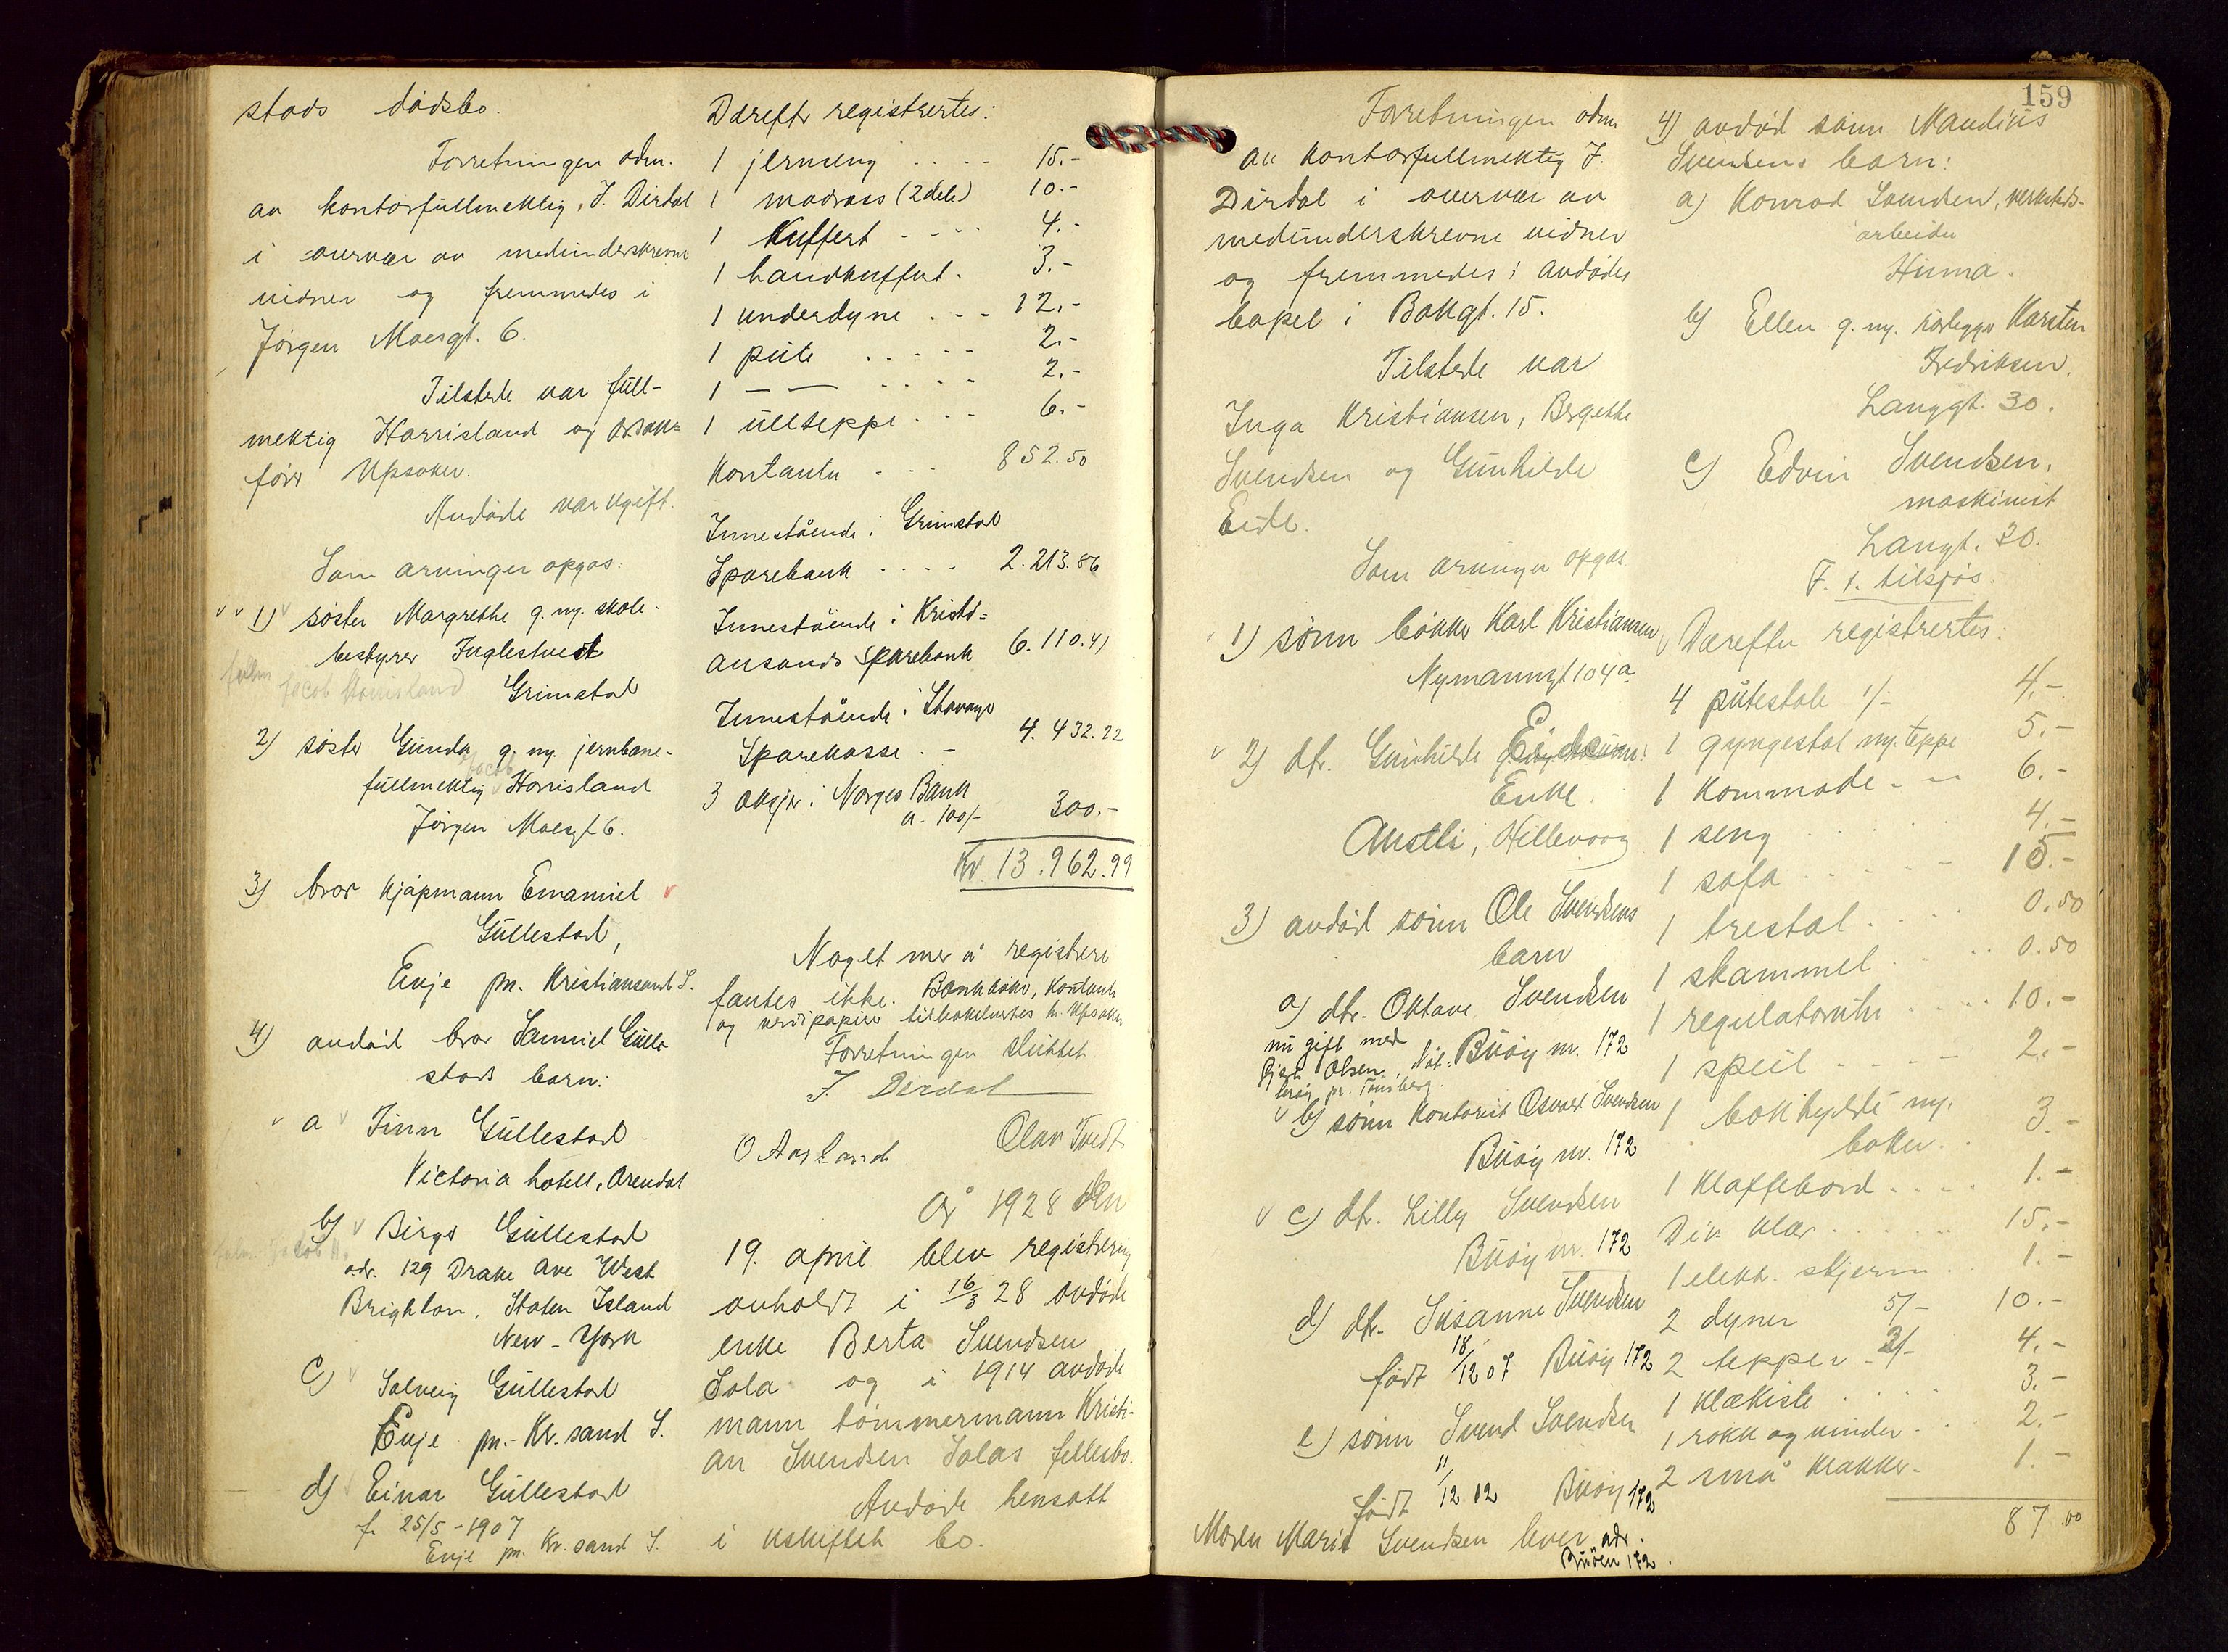 stads dødsbo.
Forretningen adm.
av kontorfullmektig J. Dirdal
i overvær av medunderskrevne
vidner og fremmedes i
Jørgen Moesgt. 6.
Tilstede var full-
mektig Harrisland og o.r.sak-
fører Upsaker.
Avdøde var ugift.
Som arvinger opgas:
1) søster Margrethe g. m. skole-
bestyrer Inglestvedt
Grimstad
2) søster Gunda g. m. jernbane-
fullmektig Harrisland
Jørgen Moesgt 6.
3) bror kjøpmann Emanuel
Gullestad,
Evje pr. Kristiansand S.
4) avdød bror Samuel Gulle-
stads barn:
a Finn Gullestad
Victoria hotell, Arendal
b) Birger Gullestad
adr. 129 Drake Ave West
Brighton, Staten Island
New-York
c) Solveig Gullestad
Evje pr. Kr.sand S.
d) Einar Gullestad
f. 25/5-1907
Evje pr. Kr.sand S.
Dærefter registrertes:
1 jernseng .... 15.-
1 madrass (2 dele) 10.-
1 kuffert .... 4.-
1 handkuffert. 3.-
1 underdyne ... 12.-
1 pute ..... 2.-
1 — .... 2.-
1 ullteppe ... 6.-
Kontanter ... 852.50
Innestående i Grimstad
Sparebank .... 2.213.86
Innestående i Kristi=
ansands Sparebank 6.110.41
Innestående i Stavanger
Sparekasse . - 4.432.22
3 aksjer i Norges Bank
a. 100/- 300.-
Kr. 13.962.99
Noget mer å registrere
fantes ikke. Bankbøker, kontanter
og verdipapirer tilbakelevertes hr. Upsaker
Forretningen sluttet
J. Dirdal
O Aarland Olav Tvedt
År 1928 den
19. april blev registrering
avholdt i 16/3 28 avdøde
enke Berta Svendsen
Sola og i 1914 avdøde
mann tømmermann Kristi-
an Svendsen Solas fellesbo.
Avdøde hensatt
i uskiftet bo.
159
Forretningen adm
av kontorfullmektig J.
Dirdal i overvær av
medunderskrevne vidner
og fremmedes i avdødes
bopel i Bakkgt. 15.
Tilstede var
Inga Kristiansen, Bergethe
Svendsen og Gunhilde
Eide.
Som arvinger opgas.
1) sønn bøkker Karl Kristiansen
Nymannsgt 104a
2) dtr. Gunhilde Eide
Enke.
Austli, Hillevaag
3) avdød sønn Ole Svendsens
barn
a) dtr. Oktave Svendsen
nu gift med
Olsen, Buøy nr. 172
pr. Tønsberg.
b) sønn kontorist Osvald Svendsen
Buøy nr. 172
c) dtr. Lilly Svendsen
Buøy nr. 172
d) dtr. Susanne Svendsen
født 18/12 07 Buøy 172
e) sønn Svend Svendsen
født 11/12 12 Buøy 172
Maren Marie Svendsen lever adr.
Buøen 172.
4) avdød sønn Maudius
Svendsens barn:
a) Konrad Svendsen, verksteds-
arbeider
Hinna.
b) Ellen g. m. rørlegger Karsten
Fredriksen,
Langgt. 30.
c) Edvin Svendsen,
maskinist
Langt. 30.
F. t. tilsjøs.
Dærefter registrertes:
4 putestole 1/- 4.-
1 gyngestol m. teppe 5.-
1 kommode . - 6.-
1 seng ... 4.-
1 sofa .... 15.-
1 trestol .... 0.50
1 skammel ... 0.50
1 regulatoruhr .... 10.-
1 speil .... 2.-
1 bokhylde m.
bøker .. 3.-
1 klaffebord .... 1.-
Div. klær ..... 15.-
1 elektr. skjerm .. 1.-
2 dyner 5/- 10.-
2 tepper 2/- 4.-
1 klækiste .... 3.-
1 rokk og vinder .. 2.-
2 små krakker - 1.-
87.00